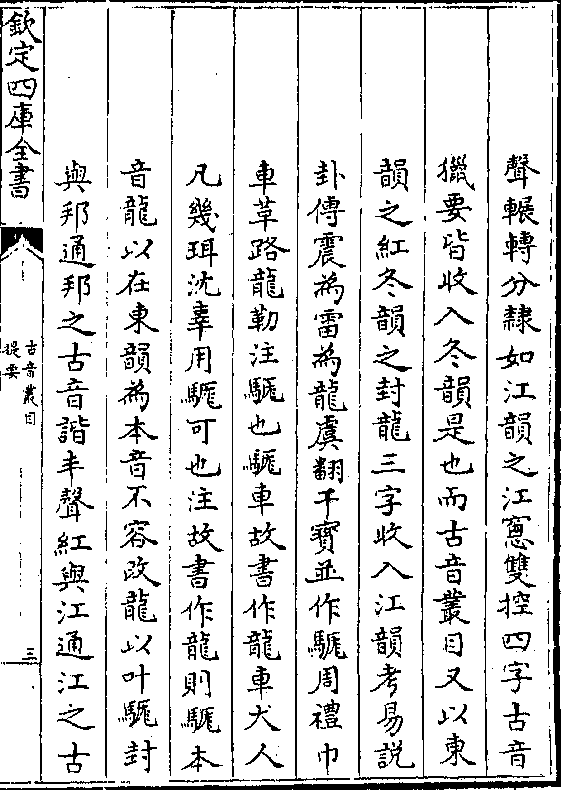 聲輾轉分隸如江韻之江窻雙控四字古音
獵要皆收入冬韻是也而古音叢目又以東
韻之紅冬韻之封龍三字收入江韻考易說
卦傳震為雷為龍虞翻干寶並作駹周禮巾
車革路龍勒注駹也駹車故書作龍車犬人
凡幾珥沈辜用駹可也注故書作龍則駹本
音龍以在東韻為本音不容改龍以叶駹封
與邦通邦之古音諧丰聲紅與江通江之古
欽定四庫全書
古音叢目
提要
三